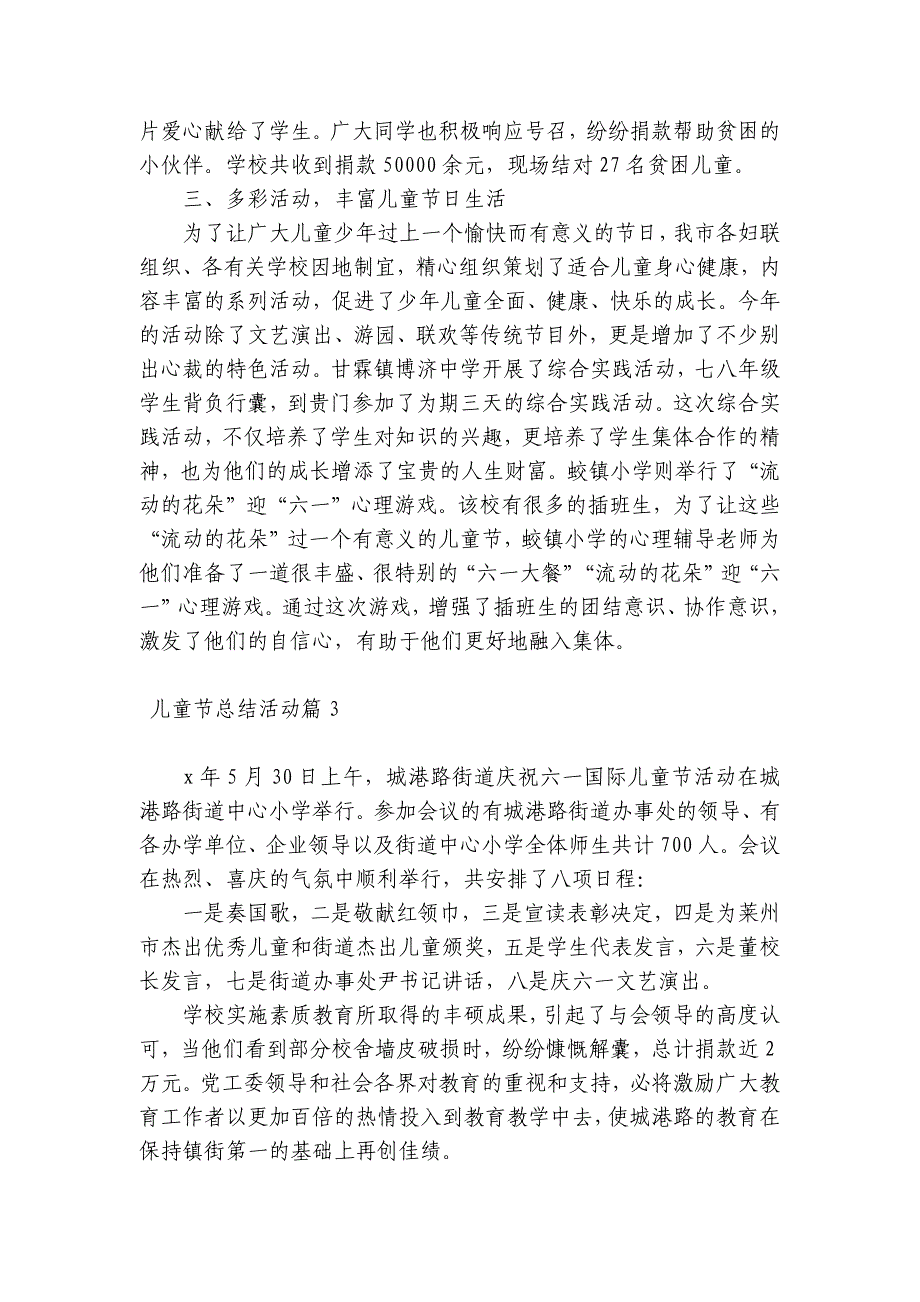 片爱心献给了学生。广大同学也积极响应号召，纷纷捐款帮助贫困的
小伙伴。学校共收到捐款 50000 余元，现场结对 27 名贫困儿童。
三、多彩活动，丰富儿童节日生活
为了让广大儿童少年过上一个愉快而有意义的节日，我市各妇联
组织、各有关学校因地制宜，精心组织策划了适合儿童身心健康，内
容丰富的系列活动，促进了少年儿童全面、健康、快乐的成长。今年
的活动除了文艺演出、游园、联欢等传统节目外，更是增加了不少别
出心裁的特色活动。甘霖镇博济中学开展了综合实践活动，七八年级
学生背负行囊，到贵门参加了为期三天的综合实践活动。这次综合实
践活动，不仅培养了学生对知识的兴趣，更培养了学生集体合作的精
神，也为他们的成长增添了宝贵的人生财富。蛟镇小学则举行了“流
动的花朵”迎“六一”心理游戏。该校有很多的插班生，为了让这些
“流动的花朵”过一个有意义的儿童节，蛟镇小学的心理辅导老师为
他们准备了一道很丰盛、很特别的“六一大餐”“流动的花朵”迎“六
一”心理游戏。通过这次游戏，增强了插班生的团结意识、协作意识，
激发了他们的自信心，有助于他们更好地融入集体。
儿童节总结活动篇 3
x 年 5 月 30 日上午，城港路街道庆祝六一国际儿童节活动在城
港路街道中心小学举行。参加会议的有城港路街道办事处的领导、有
各办学单位、企业领导以及街道中心小学全体师生共计 700 人。会议
在热烈、喜庆的气氛中顺利举行，共安排了八项日程：
一是奏国歌，二是敬献红领巾，三是宣读表彰决定，四是为莱州
市杰出优秀儿童和街道杰出儿童颁奖，五是学生代表发言，六是董校
长发言，七是街道办事处尹书记讲话，八是庆六一文艺演出。
学校实施素质教育所取得的丰硕成果，引起了与会领导的高度认
可，当他们看到部分校舍墙皮破损时，纷纷慷慨解囊，总计捐款近 2
万元。党工委领导和社会各界对教育的重视和支持，必将激励广大教
育工作者以更加百倍的热情投入到教育教学中去，使城港路的教育在
保持镇街第一的基础上再创佳绩。